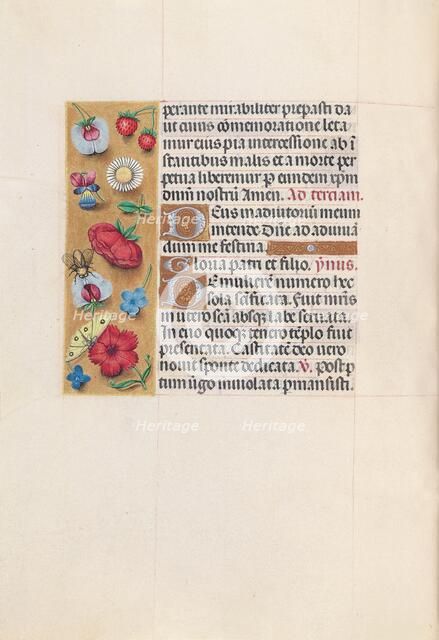 perante mirabiliter prepasti da
ut cuius cõmemoratione leta
mur eius pia intercessione ab ĩ
stantibus malis et a morte per
petua liberemur p eundem xpm
dñm nostrũ Amen. Ad terciam.
Deus in adiutoriũ meum
intende Dñe ad adiuuã
dum me festina.
Gloria patri et filio. ymus.
O mulierũ numero hec
sola scificata. Fuit mris
in utero scã absq labe seruata.
In euo quoq tenero tẽplo fuit
presentata. Castitatẽ deo uero
nomĩ sponte dedicata. V. Post p
tum ũgo inuiolata p mansisti.
Heritage
Heritage
Heritage
Heritage
Heritage
Heritage